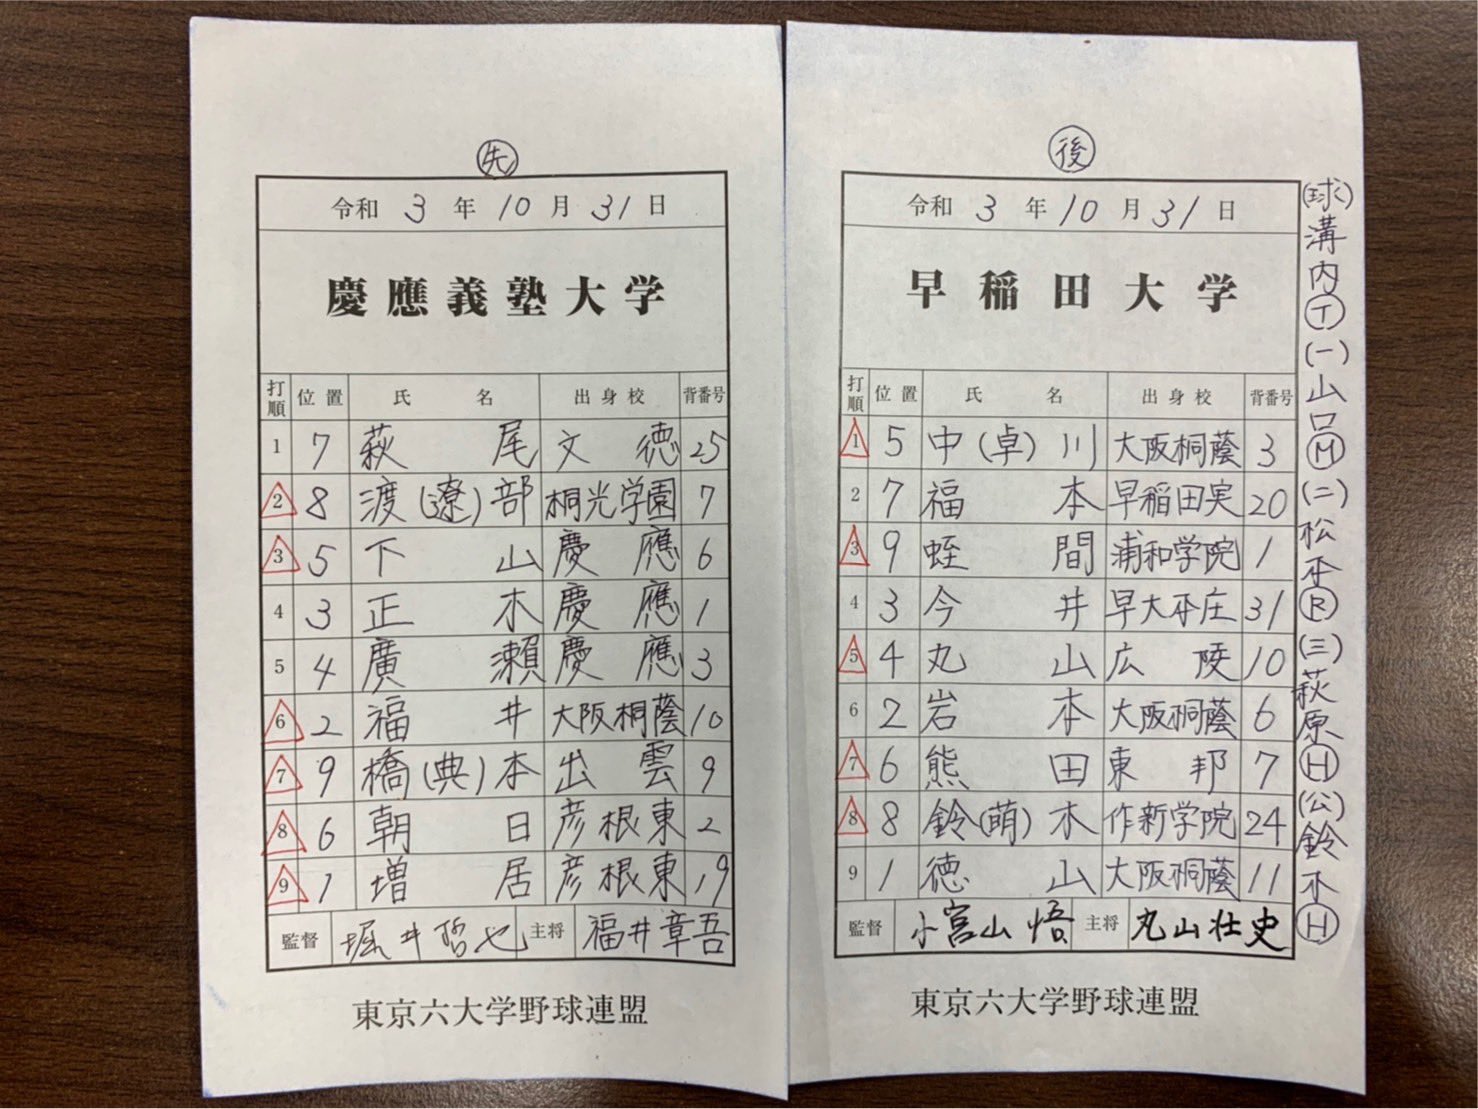 先
令和 3 年 10 月 31 日
慶應義塾大学
打順 位置 氏名 出身校 背番号
1 7 萩尾 文徳 25
2 8 渡(遼)部 桐光学園 7
3 5 下山 慶應 6
4 3 正木 慶應 1
5 4 廣瀬 慶應 3
6 2 福井 大阪桐蔭 10
7 9 橋(典)本 出雲 9
8 6 朝日 彦根東 2
9 1 増居 彦根東 19
監督 堀井哲也 主将 福井章吾
東京六大学野球連盟
後
令和 3 年 10 月 31 日
早稲田大学
打順 位置 氏名 出身校 背番号
1 5 中(卓)川 大阪桐蔭 3
2 7 福本 早稲田実 20
3 9 蛭間 浦和学院 1
4 3 今井 早大本庄 31
5 4 丸山 広陵 10
6 2 岩本 大阪桐蔭 6
7 6 熊田 東邦 7
8 8 鈴(萌)木 作新学院 24
9 1 徳山 大阪桐蔭 11
監督 小宮山悟 主将 丸山壮史
東京六大学野球連盟
(球)溝内Ⓣ(一)山口Ⓜ(二)松本Ⓡ(三)萩原Ⓗ(公)鈴木Ⓗ